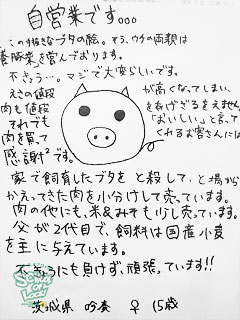 自営業です...
この描きなブタの絵。そう、ウチの両親は
養豚業を営んでおります。
不きょう…。マジで大変らしいです。
えさの値段が高くなってしまい、
肉も値段をあげざるをえません
それでも「おいしい」と言って
肉を買ってくれるお客さんには
感謝です。
家で飼育したブタをと殺して、と場から
かえってきた肉を小分けして売っています。
肉の他にも、米&みそも少し売っています。
父が2代目で、飼料は国産小麦
を主に与えています。
不きょうにも負けず、頑張っています!!
茨城県 吟奏 ♀ 15歳
SCHOOL OF LOCK